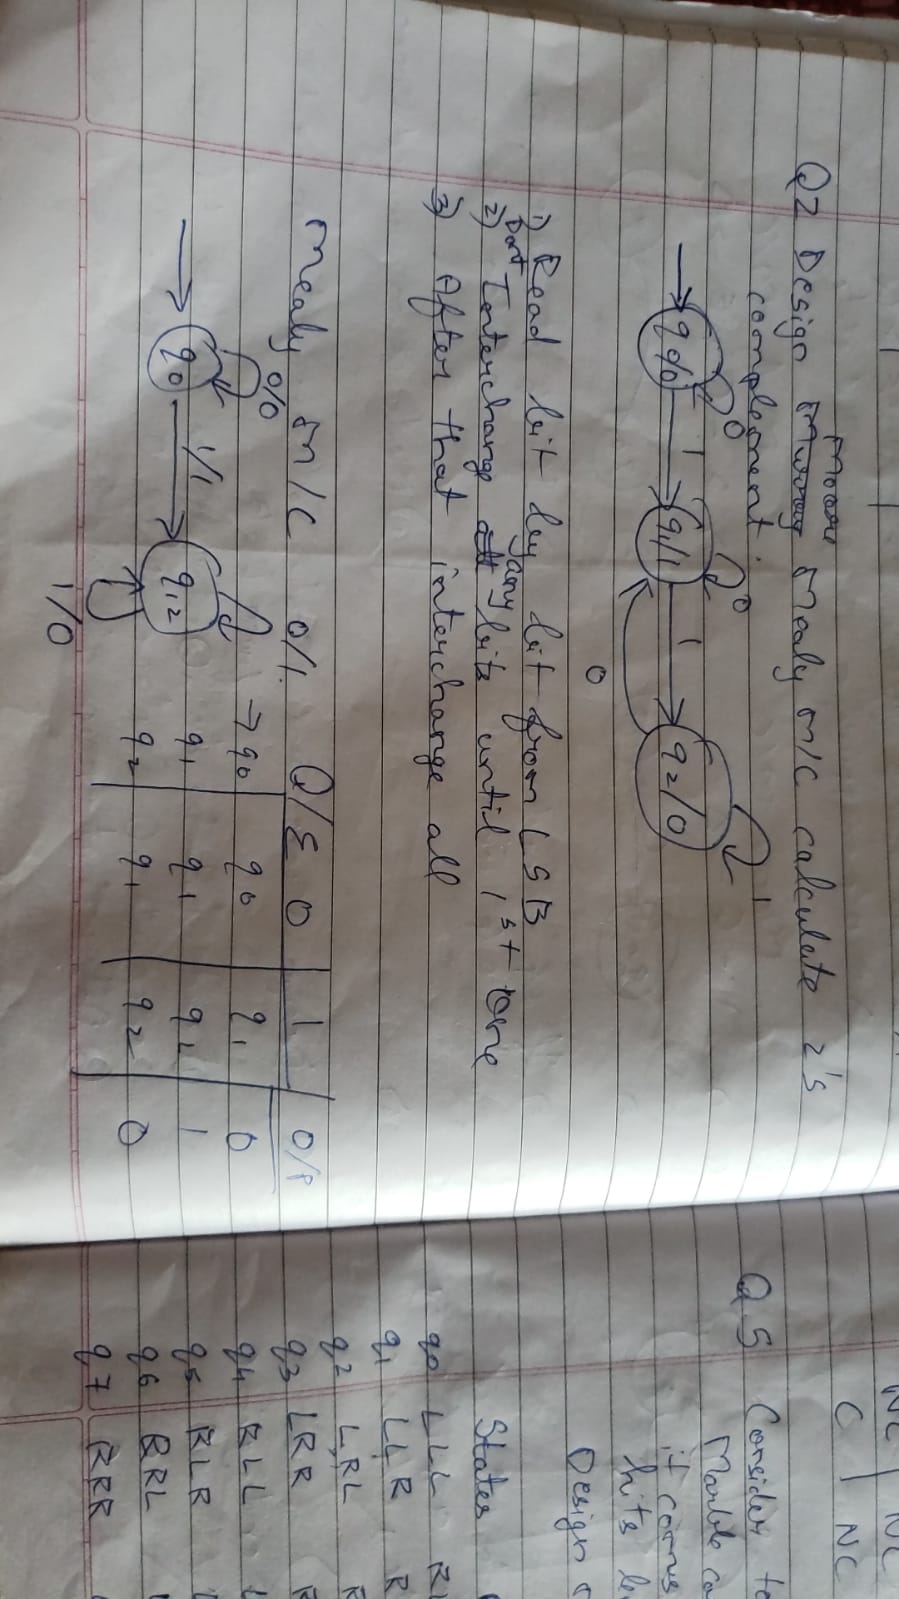 Q2 Design Moore Mealy m/c calculate 2's
complement.
0 0 1
q0/0 1 q1/1 1 q2/0
0
1) Read bit by bit from LSB
2) Dont Interchange any bits until 1st one
3) After that interchange all
Mealy M/C
0/0 0/1
q0 1/1 q12
1/0
Q/Σ 0 1 O/P
→q0 q0 q1 0
q1 q1 q2 1
q2 q1 q2 0
NC NC
C NC
Q.5 Consider to
Marble ca
it comes
hits le
Design
States
q0 LLL
q1 LLR R
q2 LRL R
q3 LRR R
q4 RLL L
q5 RLR
q6 RRL
q7 RRR